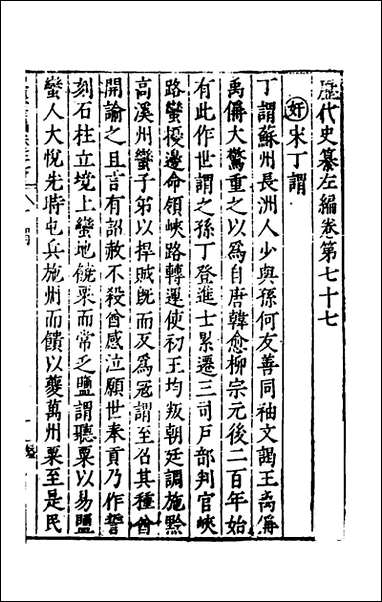 歷代史纂左編卷第七十七
奸 宋丁謂
丁謂蘇州長洲人少與孫何友善同袖文謁王禹偁
禹偁大驚重之以為自唐韓愈柳宗元後二百年始
有此作世謂之孫丁登進士累遷三司戶部判官峽
路蠻擾邊命領峽路轉運使初王均叛朝廷調施黔
高溪州蠻子弟以捍賊旣而反為冦謂至召其種酋
開諭之且言有詔赦不殺酋感泣願世奉貢乃作誓
刻石柱立境上蠻地饒粟而常乏鹽謂聽粟以易鹽
蠻人大悅先時屯兵施州而饋以夔萬州粟至是民